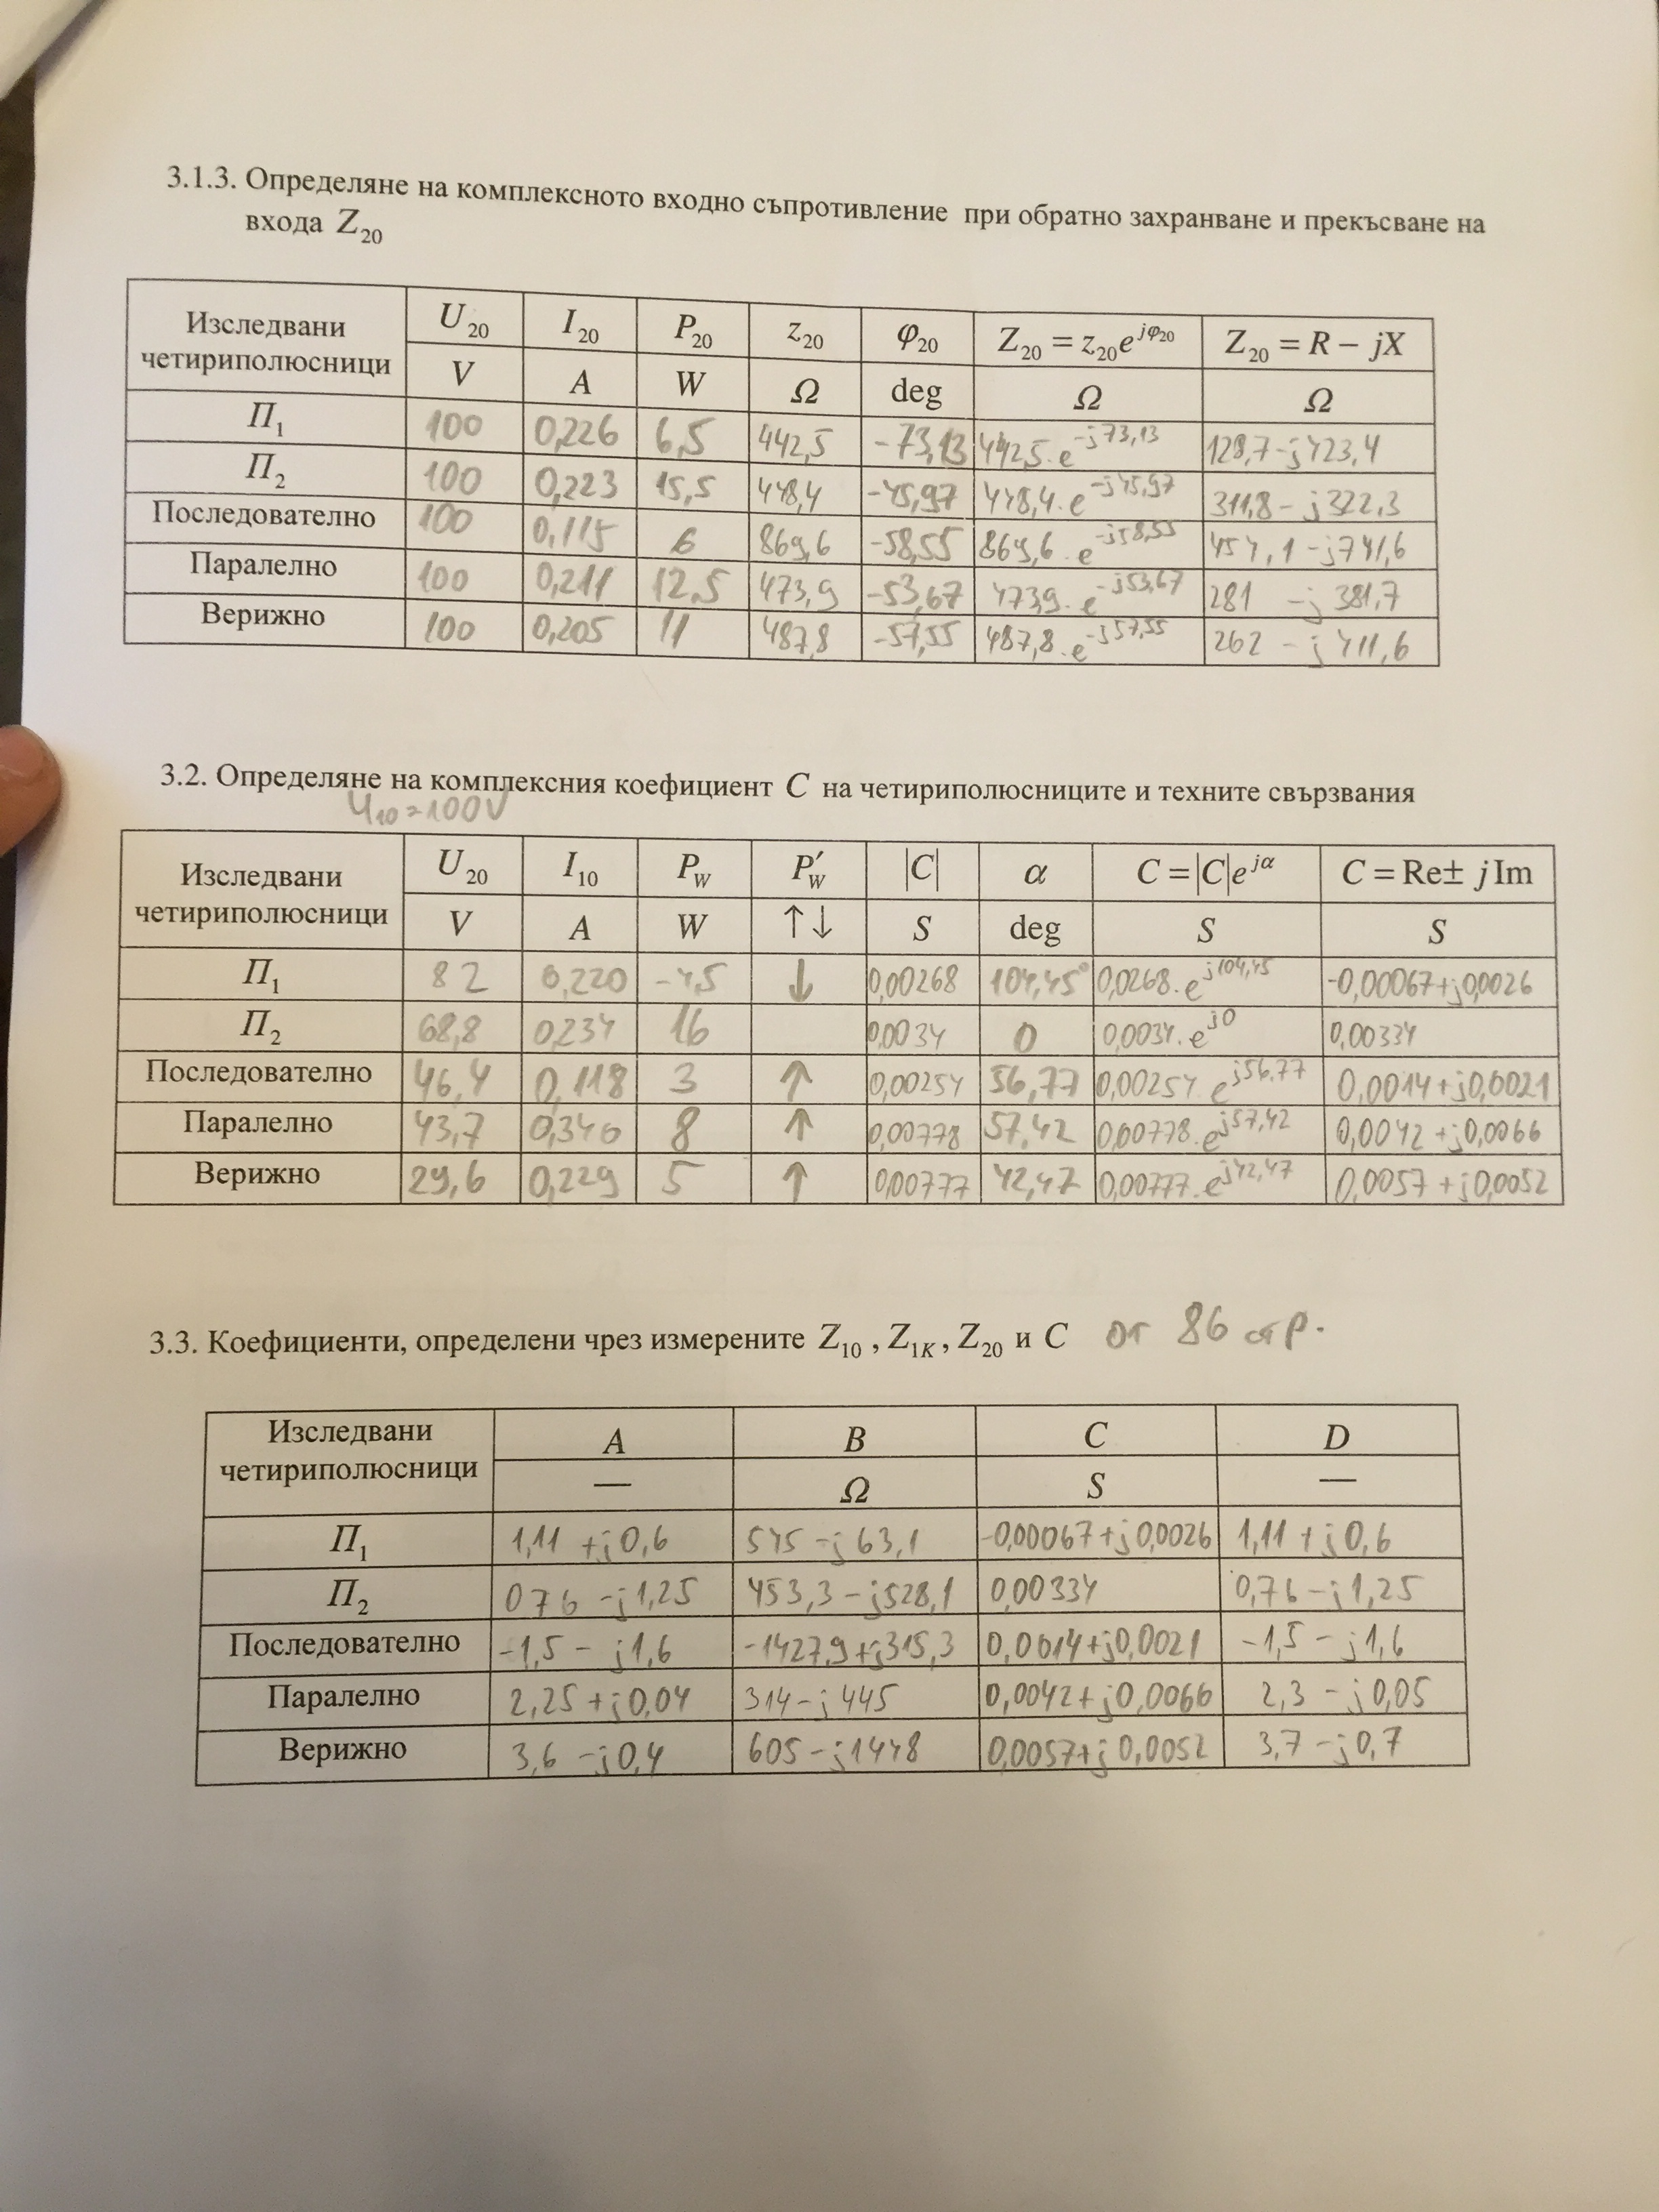 3.1.3. Определяне на комплексното входно съпротивление при обратно захранване и прекъсване на
входа Z20
Изследвани четириполюсници U20 I20 P20 z20 φ20 Z20 = z20e^jφ20 Z20 = R − jX
V A W Ω deg Ω Ω
П1 100 0,226 6,5 442,5 -73,13 442,5.e^-j73,13 128,7-j423,4
П2 100 0,223 15,5 448,4 -45,97 448,4.e^-j45,97 311,8-j322,3
Последователно 100 0,115 6 869,6 -58,55 869,6.e^-j58,55 454,1-j741,6
Паралелно 100 0,211 12,5 473,9 -53,67 473,9.e^-j53,67 281 -j 381,7
Верижно 100 0,205 11 487,8 -57,55 487,8.e^-j57,55 262 - j 411,6
3.2. Определяне на комплексния коефициент C на четириполюсниците и техните свързвания
U10=100V
Изследвани четириполюсници U20 I10 PW P′W |C| α C = |C|e^jα C = Re± j Im
V A W ↑↓ S deg S S
П1 82 0,220 -4,5 ↓ 0,00268 104,45° 0,0268.e^j104,45 -0,00067+j0,0026
П2 68,8 0,234 16 0,0034 0 0,0034.e^j0 0,00334
Последователно 46,4 0,118 3 ↑ 0,00254 56,77 0,00254.e^j56,77 0,0014+j0,0021
Паралелно 43,7 0,340 8 ↑ 0,00778 57,42 0,00778.e^j57,42 0,0042+j0,0066
Верижно 29,6 0,229 5 ↑ 0,00777 42,47 0,00777.e^j42,47 0,0057+j0,0052
3.3. Коефициенти, определени чрез измерените Z10 , Z1K , Z20 и C от 86 стр.
Изследвани четириполюсници A B C D
— Ω S —
П1 1,11 +j0,6 545 -j63,1 -0,00067+j0,0026 1,11 + j0,6
П2 0 76 -j1,25 453,3-j528,1 0,00334 0,76-j1,25
Последователно -1,5 - j1,6 -1427,9+j315,3 0,0014+j0,0021 -1,5 - j1,6
Паралелно 2,25 +j0,04 314-j445 0,0042+j0,0066 2,3 -j0,05
Верижно 3,6 -j0,4 605-j1448 0,0057+j0,0052 3,7-j0,7